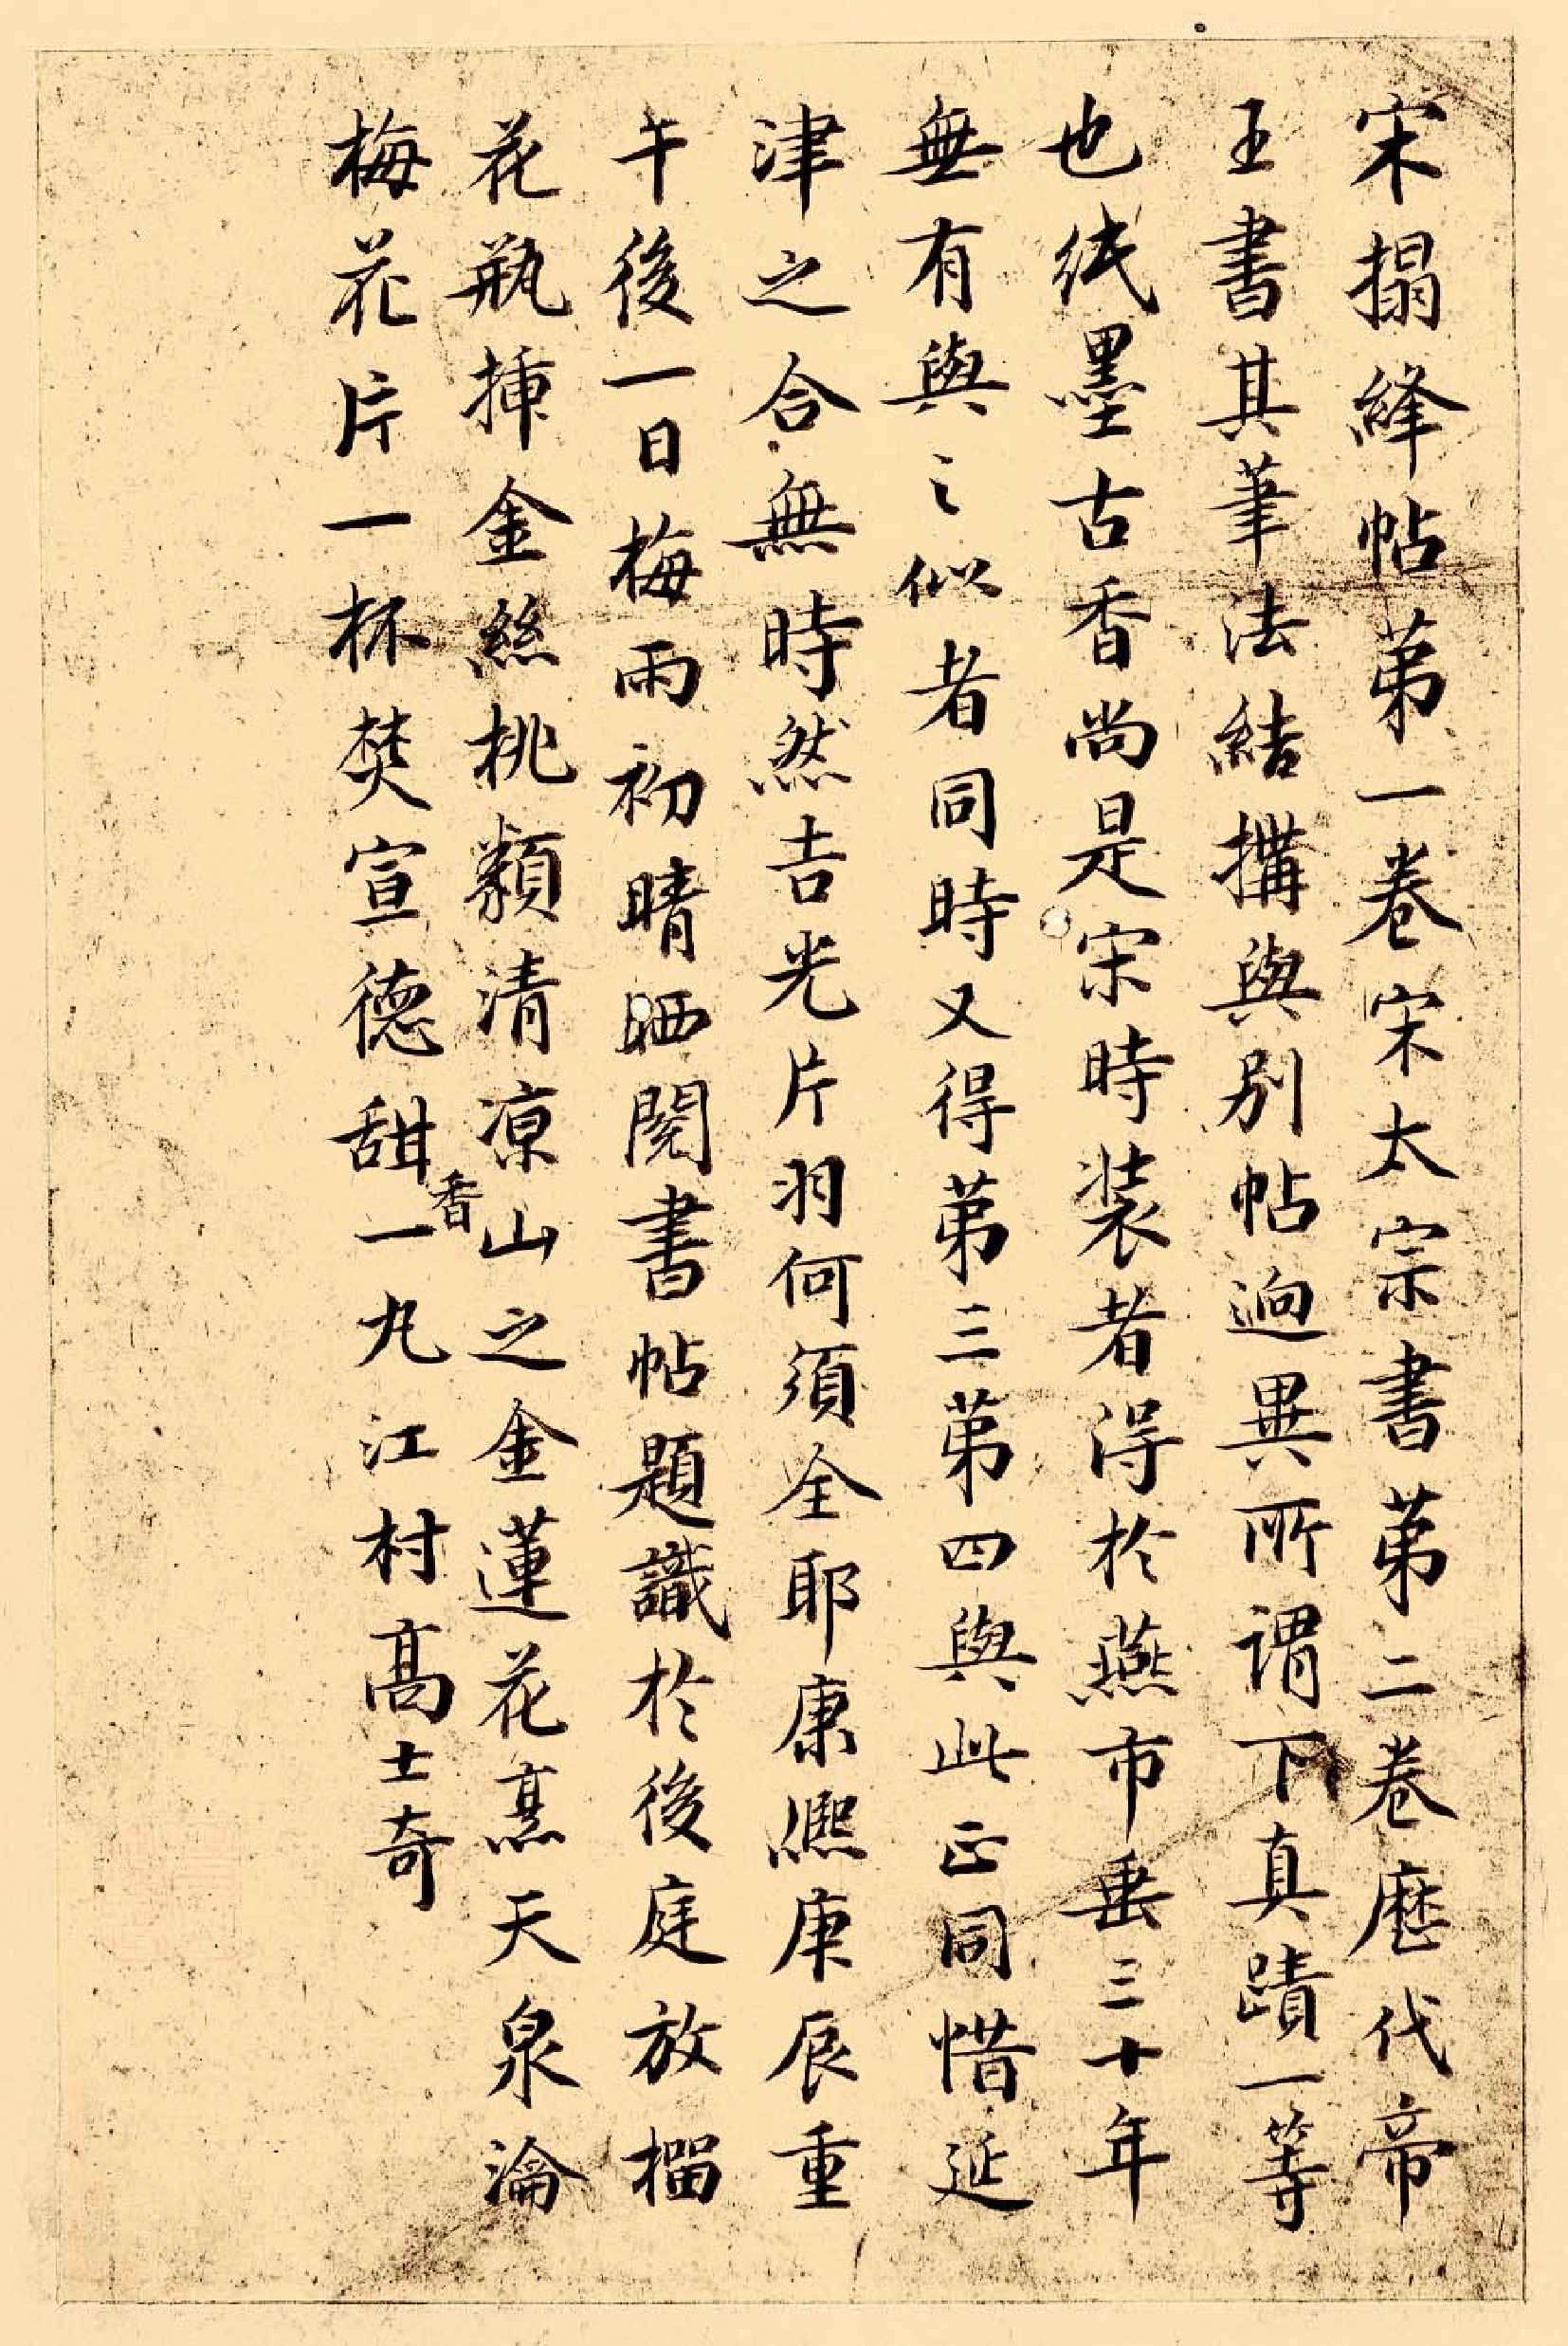 宋搨絳帖第一卷宋太宗書第二卷歷代帝
王書其筆法結搆與別帖迥異所謂下真蹟一等
也紙墨古香尚是宋時装者得於燕市垂三十年
無有與之似者同時又得第三第四與此正同惜延
津之合無時然吉光片羽何須全耶康熙庚辰重
午後一日梅雨初晴晒閱書帖題識於後庭放榴
花瓶揷金絲桃纇清凉山之金蓮花熹天泉瀹
梅花片一杯焚宣德甜香一丸江村髙士奇